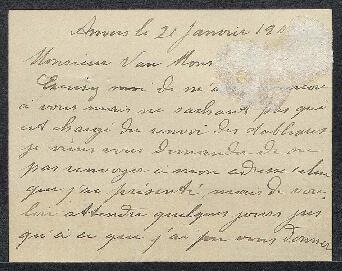 Anvers le 21 Janvier 190
Monsieur Van Mons
Excusez moi de m'
à vous mais ne sachant pas qui
est chargé du renvoi des
je viens vous demander de ne
pas renvoyer a mon adresse celui
que j'ai présenté mais de vou
loir attendre quelques jours jus
qu'à ce que j'ai pu vous donner